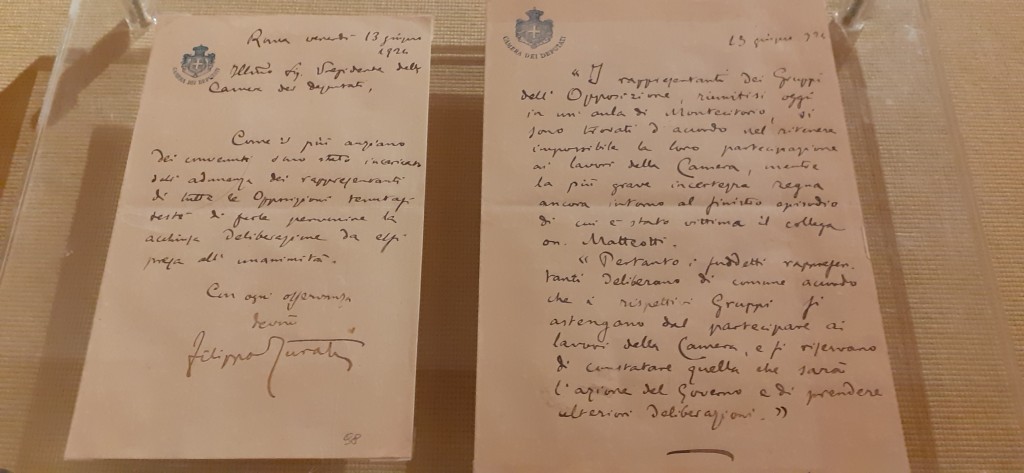 Roma venerdì 13 giugno
1924
CAMERA DEI DEPUTATI
Ill.mo Sig. Presidente della
Camera dei Deputati,
Come il più anziano
dei convenuti sono stato incaricato
dall'adunanza dei rappresentanti
di tutte le Opposizioni tenutasi
testè di farle pervenire la
acchiusa deliberazione da essi
presa all'unanimità.
Con ogni osservanza
devmo
Filippo Turati
98
CAMERA DEI DEPUTATI
13 giugno 924
"I rappresentanti dei Gruppi
dell'Opposizione, riunitisi oggi
in un'aula di Montecitorio, si
sono trovati d'accordo nel ritenere
impossibile la loro partecipazione
ai lavori della Camera, mentre
la più grave incertezza regna
ancora intorno al sinistro episodio
di cui è stato vittima il collega
on. Matteotti.
"Pertanto i suddetti rappresen-
tanti deliberano di comune accordo
che i rispettivi Gruppi si
astengano dal partecipare ai
lavori della Camera, e si riservano
di constatare quella che sarà
l'azione del Governo e di prendere
ulteriori deliberazioni."